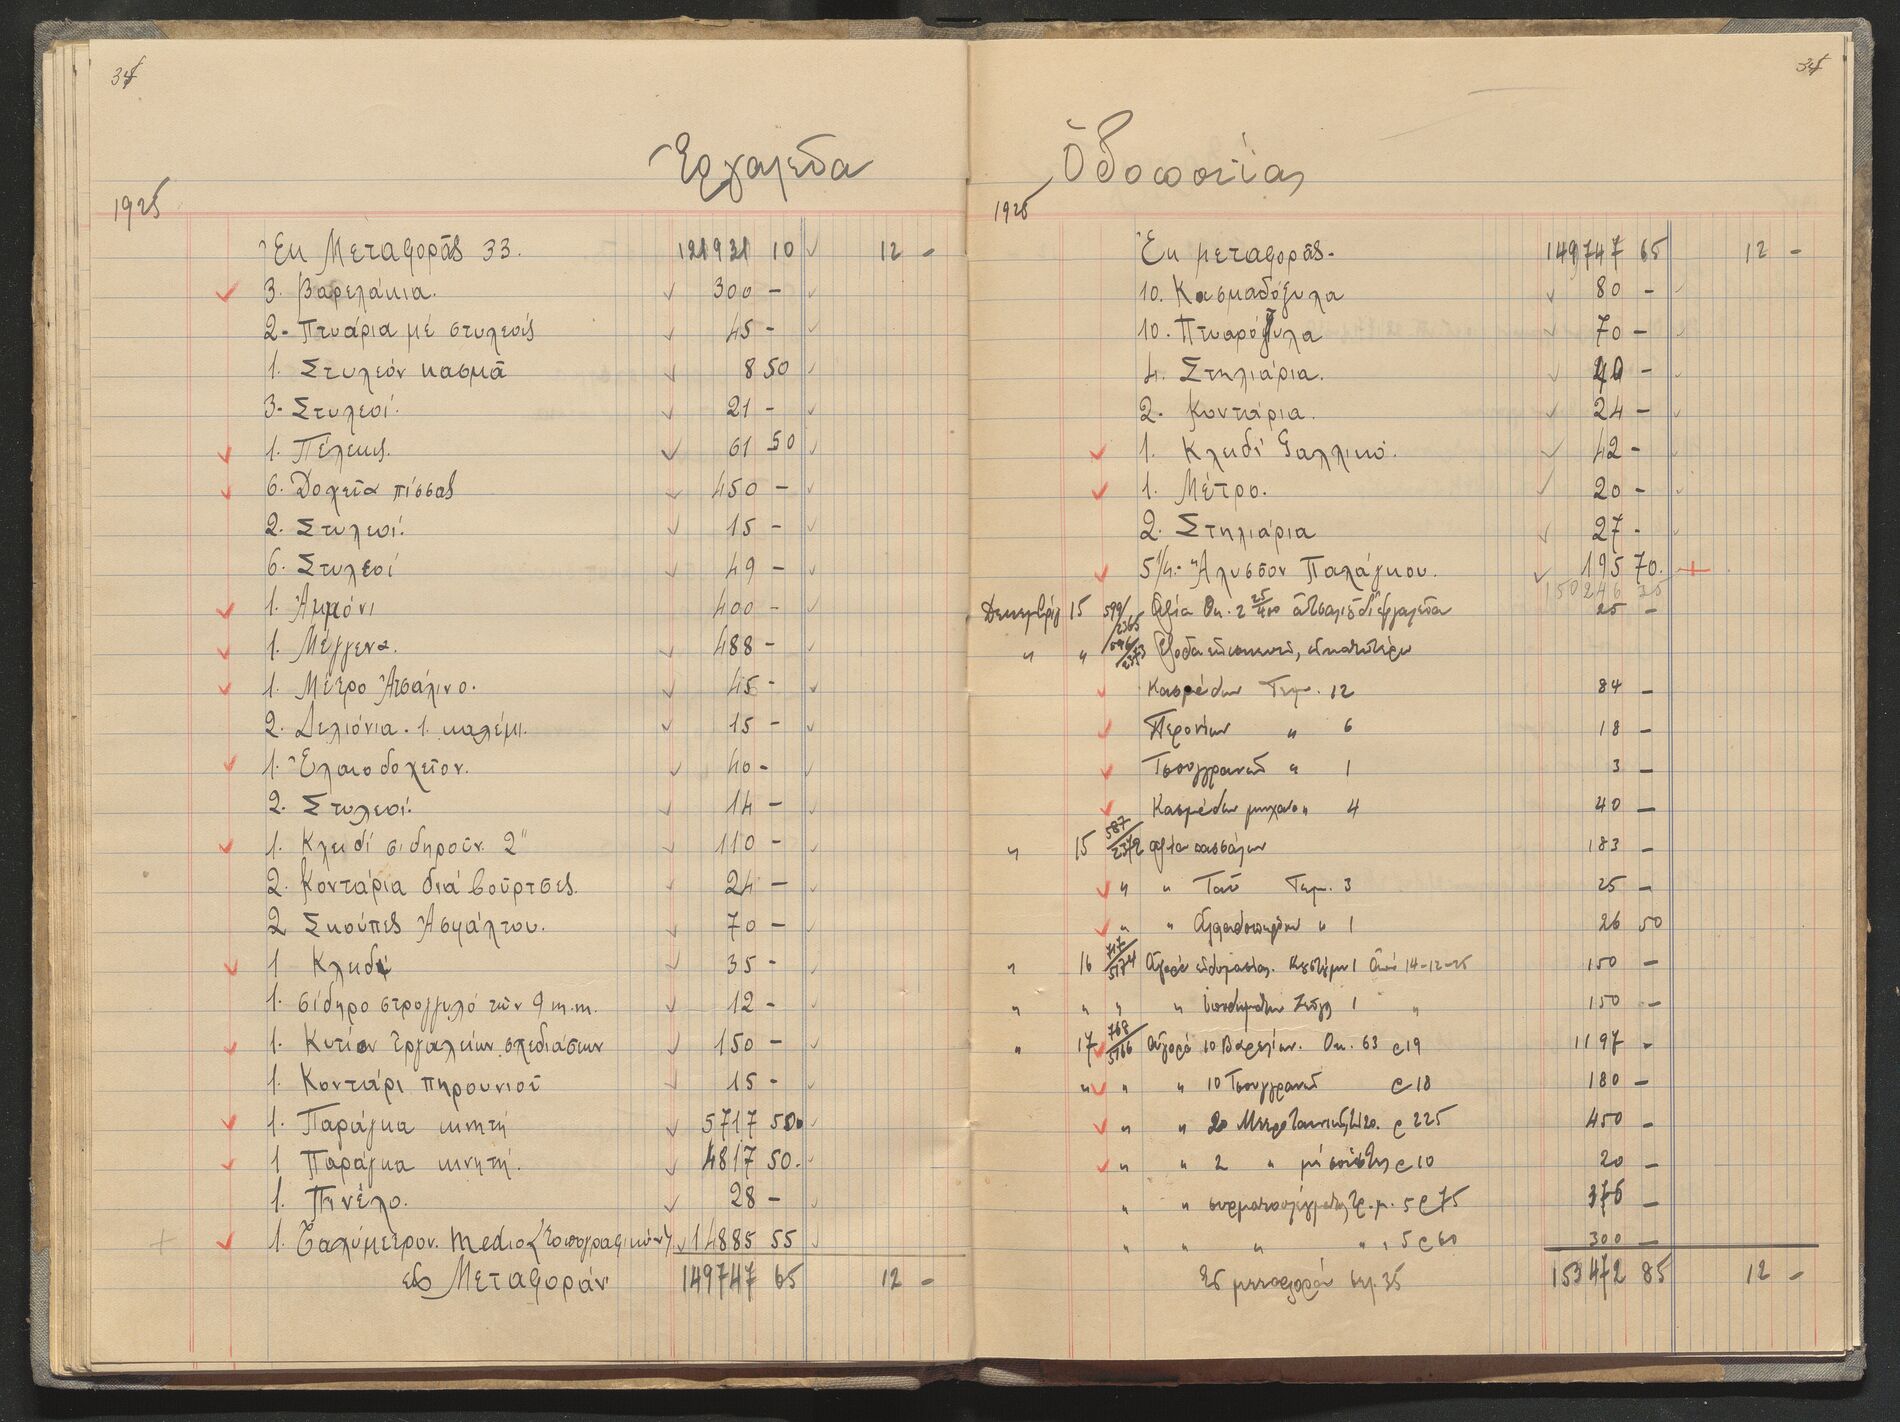 34
Ἐργαλεῖα
1925
Ἐκ Μεταφορᾶς 33. 121931 10 12 -
3. Βαρελάκια. 300 -
2- Πτυάρια μέ στυλεούς 45 -
1. Στυλεόν κασμᾶ 8 50
3- Στυλεοί. 21 -
1. Πέλεκυς. 61 50
6. Δοχεῖα πίσσας 450 -
2. Στυλεοί. 15 -
6. Στυλεοί 49 -
1. Ἀμμόνι 400 -
1. Μέγγενα. 488 -
1. Μέτρο Ἀτσάλινο. 45 -
2. Βελιόνια. 1. καλέμι. 15 -
1. Ἐλαιοδοχεῖον. 40 -
2. Στυλεοί. 14 -
1. Κλειδί σιδηροῦν. 2" 110 -
2. Κοντάρια διά βοῦρτσες. 24 -
2 Σκούπες Ἀσφάλτου. 70 -
1 Κλειδί 35 -
1. σίδηρο στρογγυλό τῶν 9 m.m. 12 -
1. Κυτίον Ἐργαλείων σχεδιάσεων 150 -
1. Κοντάρι πηρουνιοῦ 15 -
1. Παράγκα κινητή 5717 50
1 Παράγκα κινητή. 4817 50.
1. Πινέλο. 28 -
1. Ταχύμετρον. Medio (τοπογραφικόν). 14885 55
εἰς Μεταφοράν 149747 65 12 -
34
Ὁδοποιίας
1925
Ἐκ μεταφορᾶς. 149747 65 12 -
10. Κασμαδόξυλα 80 -
10. Πτυαρόξυλα 70 -
4. Στηλιάρια. 40 -
2. Κοντάρια. 24 -
1. Κλειδί Γαλλικό. 42 -
1. Μέτρο. 20 -
2. Στηλιάρια 27 -
5 1/4.- Ἄλυσσον Παλάγκου. 195 70.
150246 35
Δεκεμβρίου 15 599/2365 Ἀξία Ὀκ. 2 25/400 ἀτσαλιοῦ δι' ἐργαλεῖα 25 -
" " 596/2373 Ἔξοδα ἐπισκευῆς, ὡς κατωτέρω
Κασμέδων Τεμ. 12 84 -
Περονίων " 6 18 -
Τσουγγρανῶν " 1 3 -
Κασμέδων μηχαν. " 4 40 -
" 15 587/2372 Ἀξία πασσάλων 183 -
" " Ταῦ Τεμ. 3 25 -
" " " 1 26 50
" 16 717/5174 Ἀγορά 1 ἀπό 14-12-25 150 -
" " " " ὑποδημάτων Ζεύγη 1 " 150 -
" 17 768/5166 Ἀγορά 10 Βαρελίων. Ὀκ. 63 @ 19 1197 -
" " " 10 Τσουγγρανῶν @ 18 180 -
" " 20 @ 225 450 -
" " 2 " @ 10 20 -
" " συρματοπλέγματος τρ. μ. 5 @ 75 375 -
" " " " " 5 @ 60 300 -
Εἰς μεταφοράν σελ. 35 153472 85 12 -